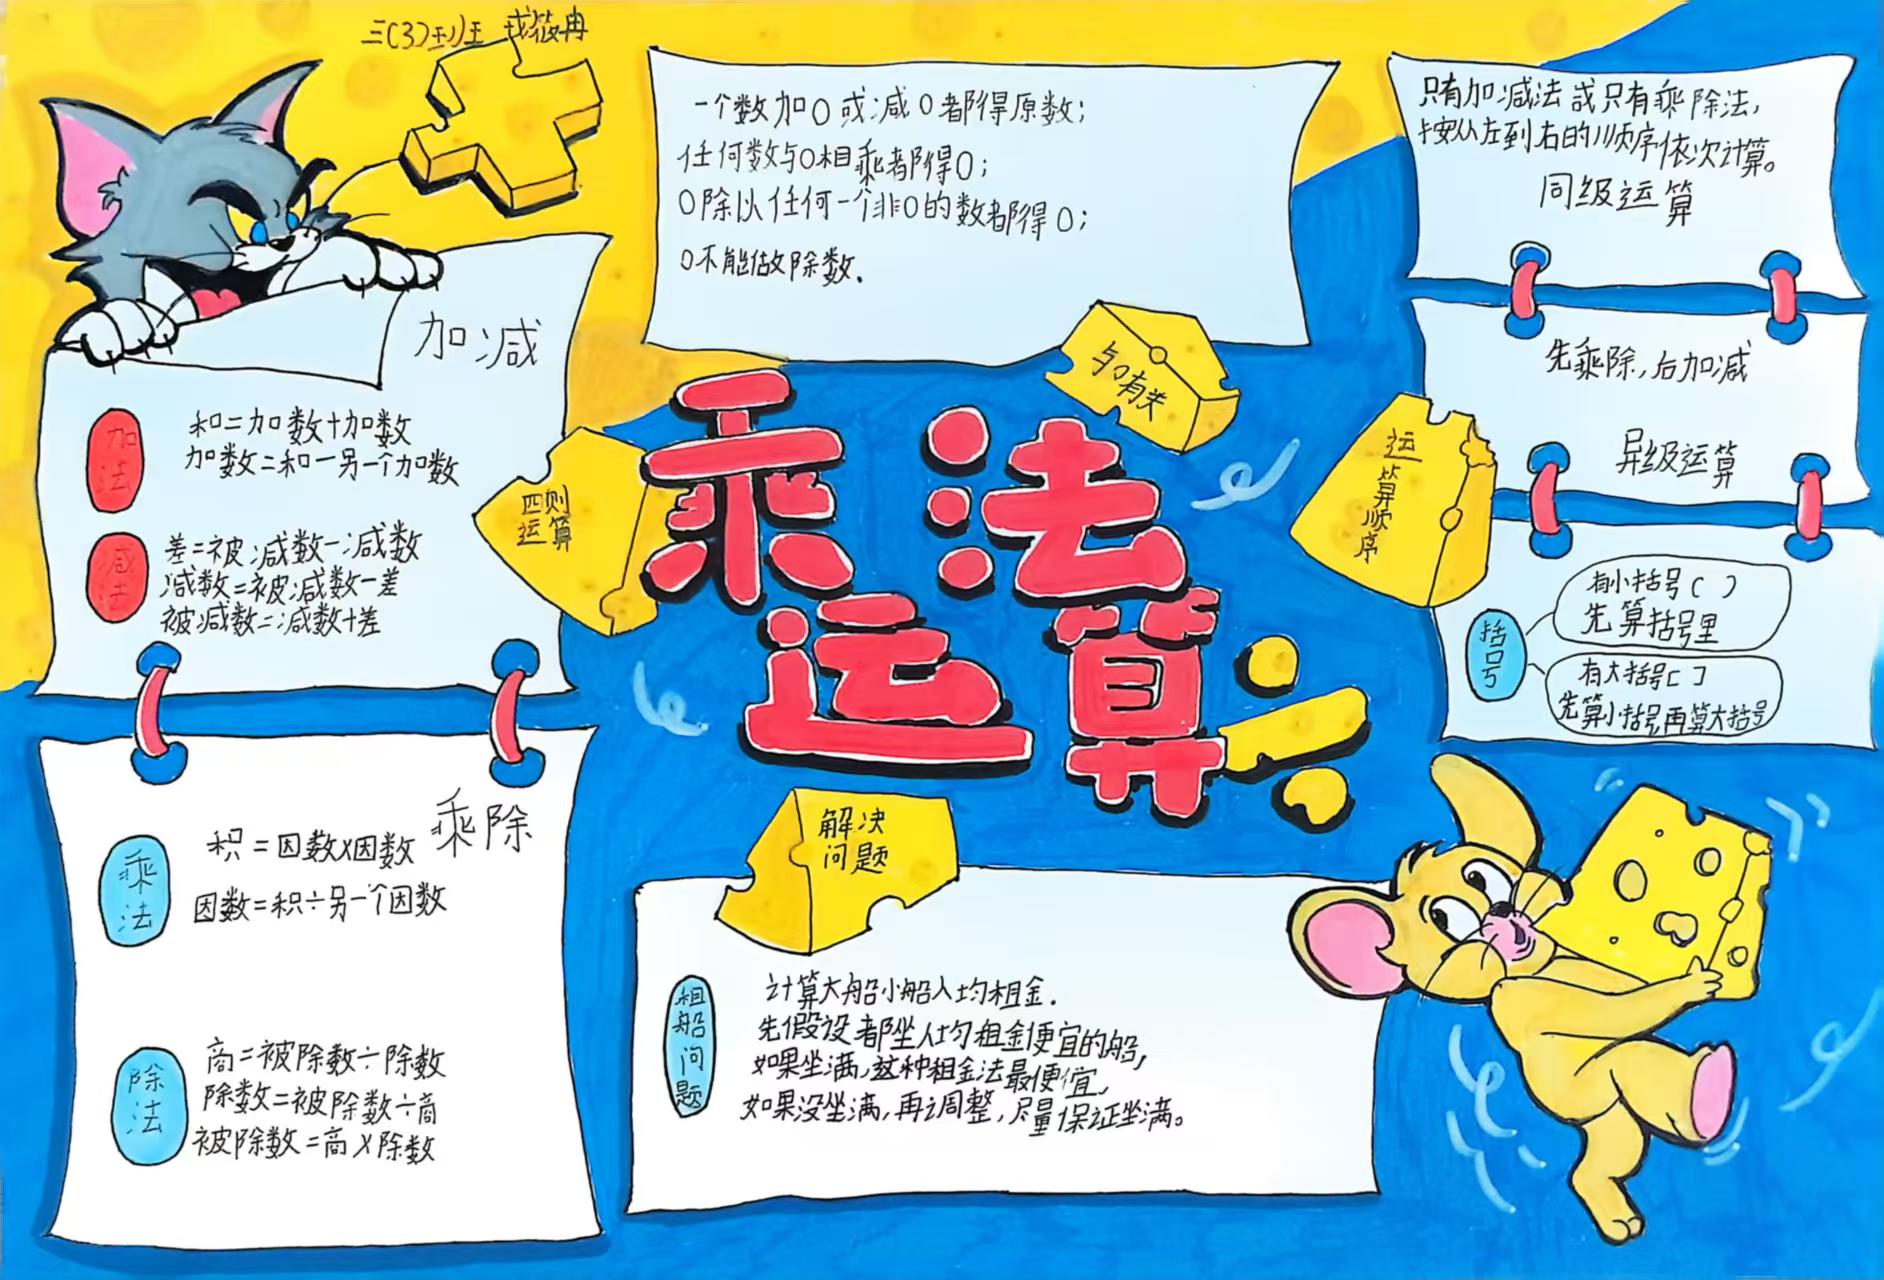 三(3)班 戎筱冉
加减
加法
和=加数+加数
加数=和-另一个加数
减法
差=被减数-减数
减数=被减数-差
被减数=减数+差
四则
运算
乘除
乘法
积=因数×因数
因数=积÷另一个因数
除法
商=被除数÷除数
除数=被除数÷商
被除数=商×除数
一个数加0或减0都得原数;
任何数与0相乘都得0;
0除以任何一个非0的数都得0;
0不能做除数.
与0有关
乘法
运算
解决
问题
租船问题
计算大船小船人均租金.
先假设都坐人均租金便宜的船,
如果坐满,这种租金法最便宜,
如果没坐满,再调整,尽量保证坐满。
只有加减法或只有乘除法,
按从左到右的顺序依次计算。
同级运算
先乘除,后加减
异级运算
运算顺序
括号
有小括号( )
先算括号里
有大括号[ ]
先算小括号,再算大括号